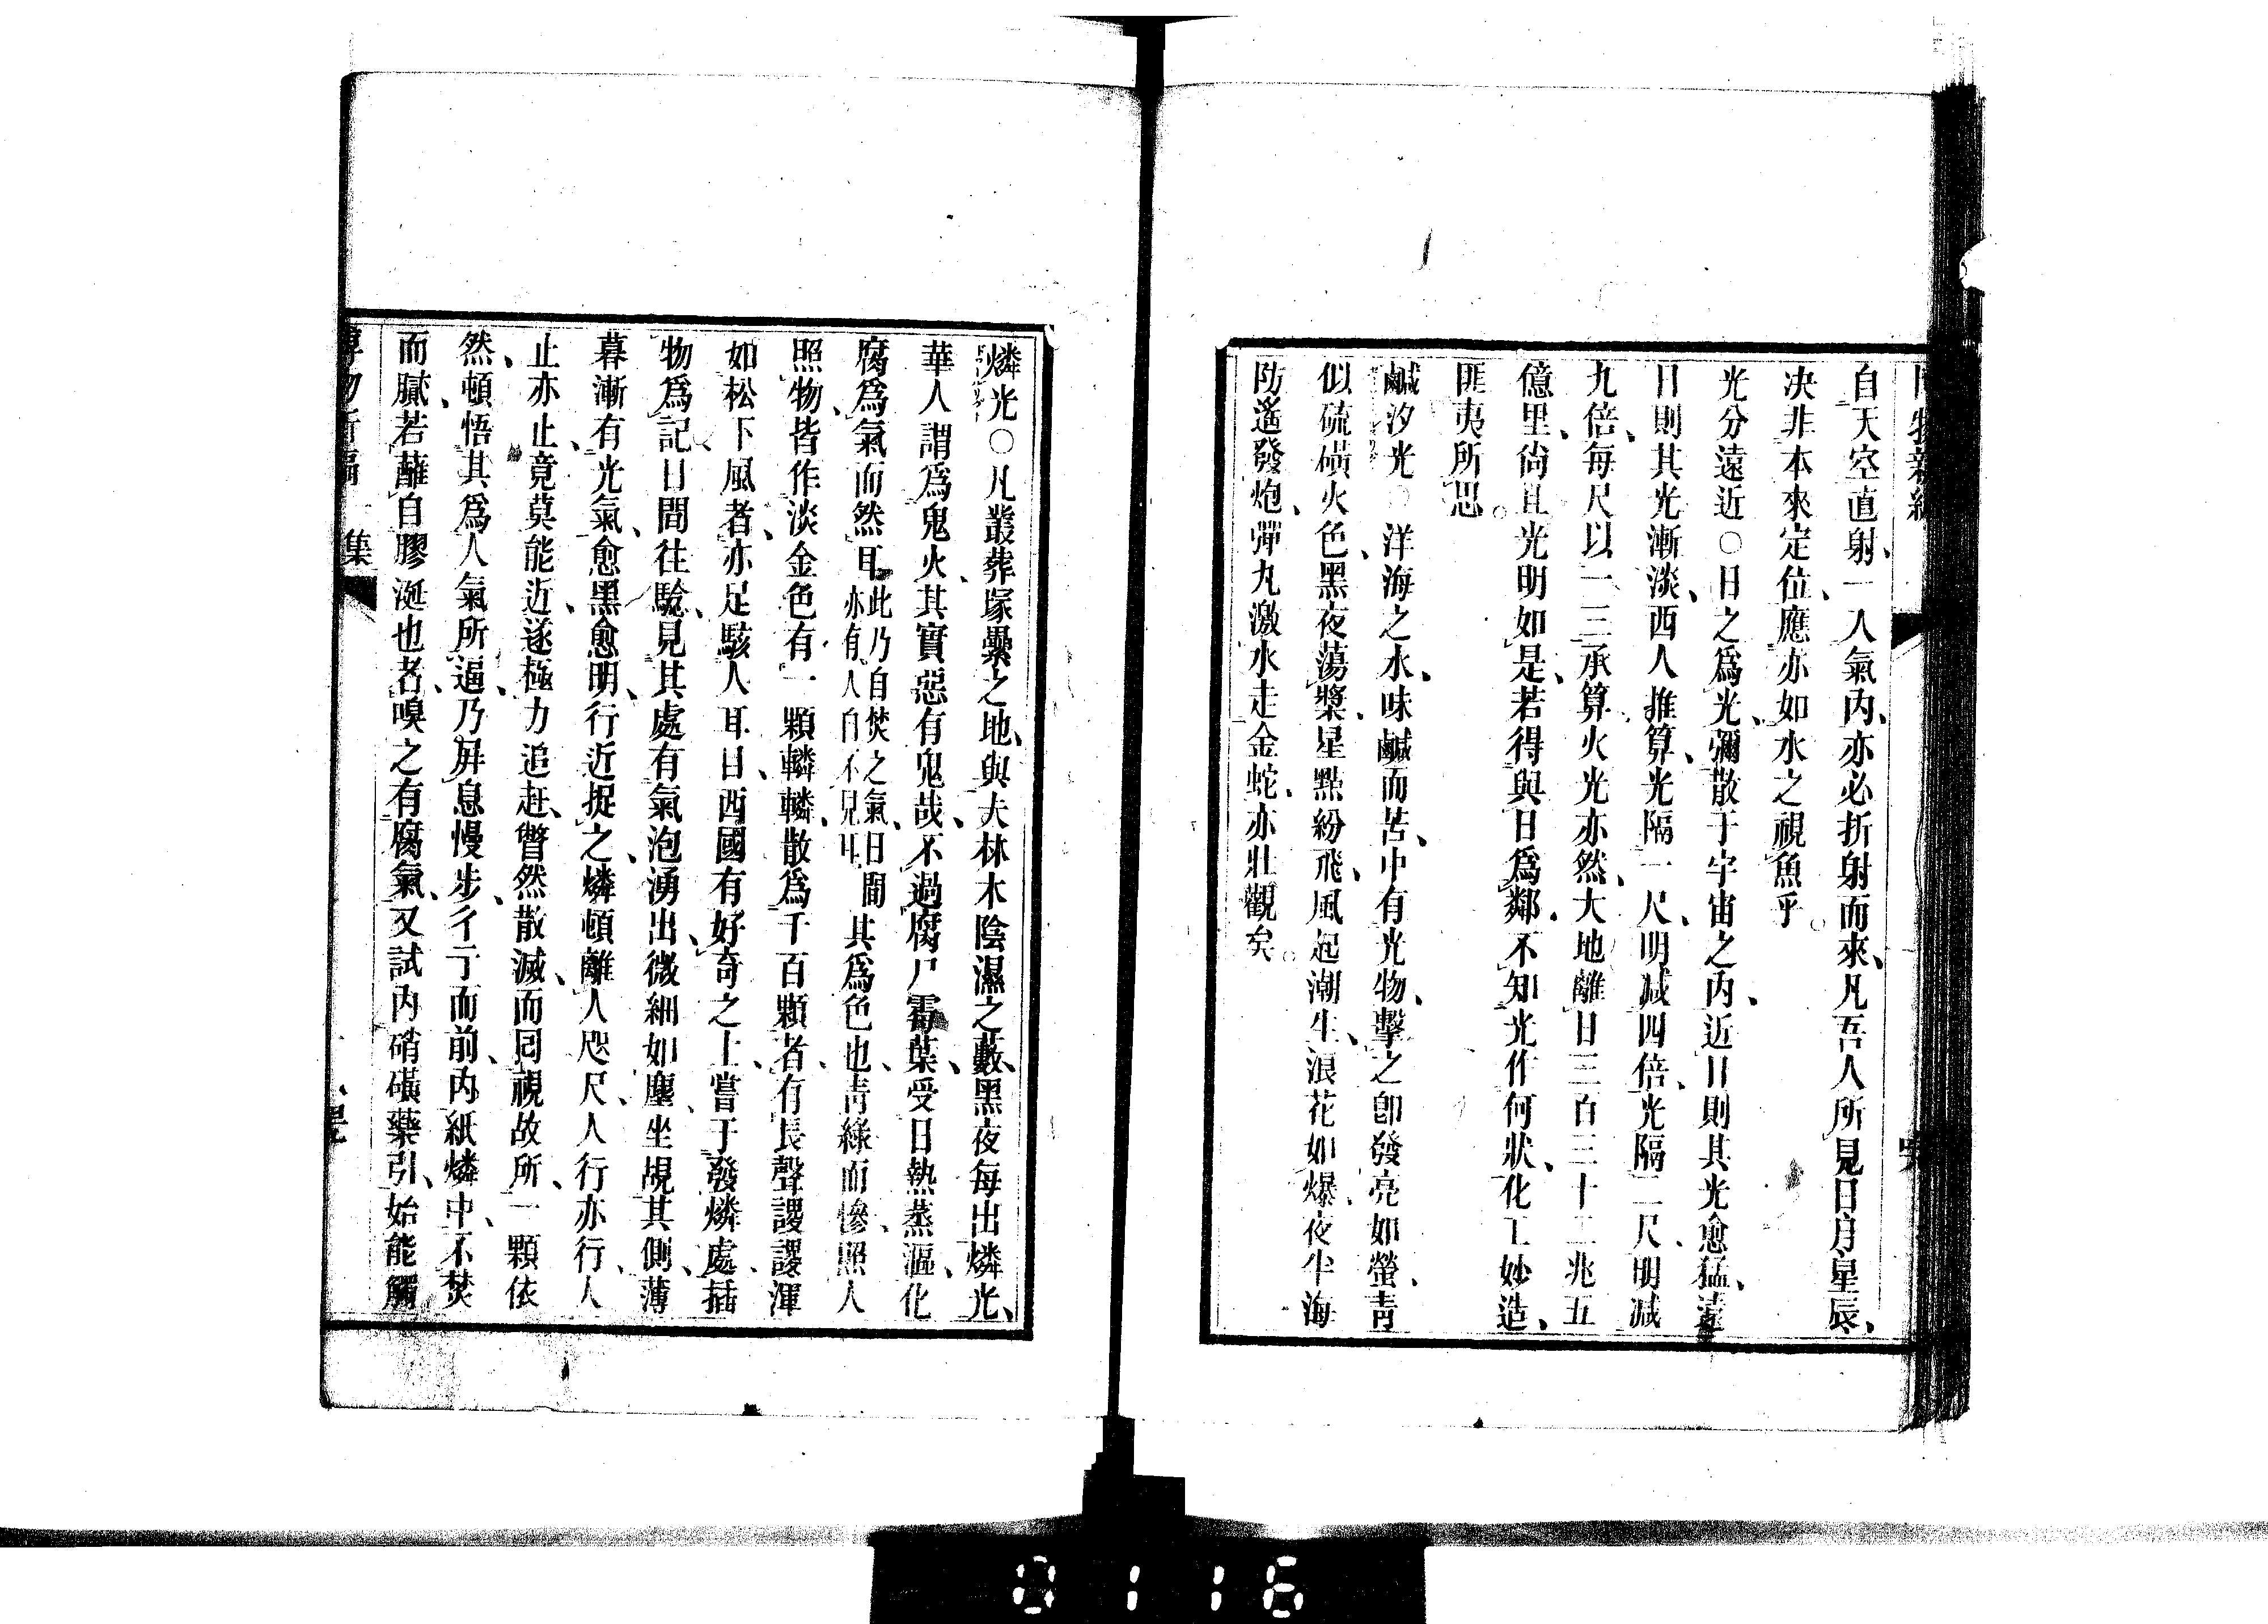 自天空直射、一入氣內、亦必折射而來、凡吾人所見日月星辰、
决非本來定位、應亦如水之視魚乎。
光分遠近○日之爲光、彌散于宇宙之內、近日則其光愈猛、遠
日則其光漸淡、西人推算、光隔一尺、明减四倍、光隔二尺、明减
九倍、每尺以一三承算、火光亦然、大地離日三百三十二兆五
億里、尙且光明如是、若得與日爲鄰、不知光作何狀、化工妙造、
匪夷所思。
鹹汐光○洋海之水、味鹹而苦、中有光物、擊之卽發亮如螢、靑
似硫磺火色、黑夜蕩槳、星點紛飛、風起潮生、浪花如爆、夜半海
防遙發炮、彈九激水走金蛇、亦壯觀矣。
燐光○凡叢葬塚纍之地、與夫林木陰濕之藪、黑夜每出燐光、
華人謂爲鬼火、其實惡有鬼哉、不過腐尸霉葉、受日熱蒸漚、化
腐爲氣而然耳此乃自焚之氣、日間亦有、人自不見耳、其爲色也、靑綠而慘、照人
照物、皆作淡金色、有一顆轔轔、散爲千百顆者、有長聲謖謖、渾
如松下風者、亦足駭人耳目、西國有好奇之士、嘗于發燐處、插
物爲記、日間往騐、見其處有氣泡湧出、微細如塵、坐覘其側、薄
暮漸有光氣、愈黑愈明、行近捉之、燐頓離人咫尺、人行亦行、人
止亦止、竟莫能近、遂極力追赶、瞥然散滅、而囘視故所、一顆依
然、頓悟其爲人氣所逼、乃屛息慢步、彳亍而前、內紙燐中、不焚
而膩、若蘸自膠涎也者、嗅之有腐氣、又試內硝磺藥引、始能觸
集